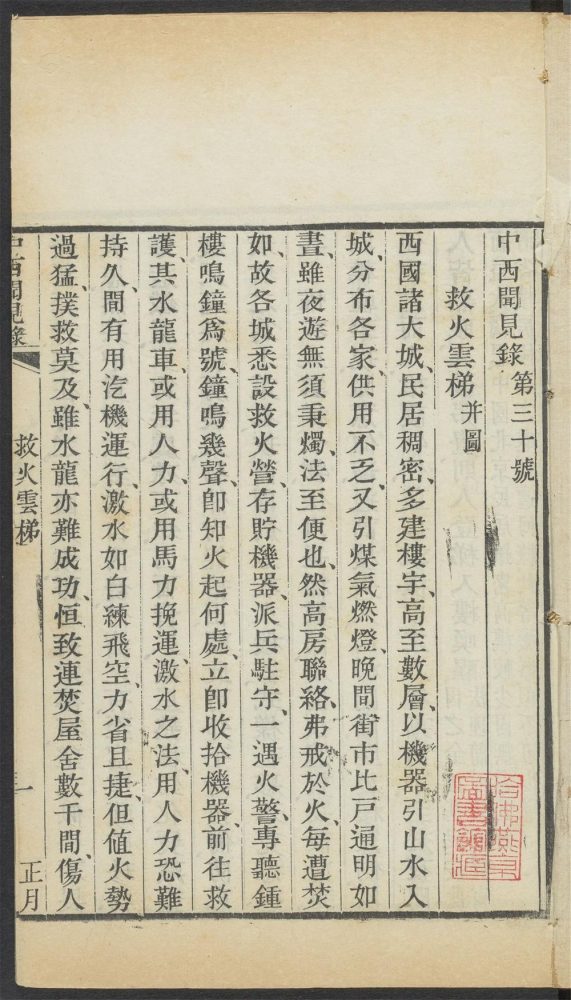 中西聞見錄第三十號
救火雲梯 并圖
西國諸大城、民居稠密、多建樓宇、高至數層、以機器引山水入
城、分布各家、供用不乏、又引煤氣燃燈、晚間街市比戶通明如
晝、雖夜遊無須秉燭、法至便也、然高房聯絡、弗戒於火、每遭焚
如、故各城悉設救火營、存貯機器、派兵駐守、一遇火警、專聽鍾
樓鳴鐘爲號、鐘鳴幾聲、卽知火起何處、立卽收拾機器、前往救
護、其水龍車、或用人力、或用馬力挽運、激水之法、用人力恐難
持久、間有用汽機運行、激水如白練飛空、力省且捷、但値火勢
過猛、撲救莫及、雖水龍亦難成功、恒致連焚屋舍數千間、傷人
中西聞見錄 救火雲梯 一 正月
哈佛燕京
圖書館藏